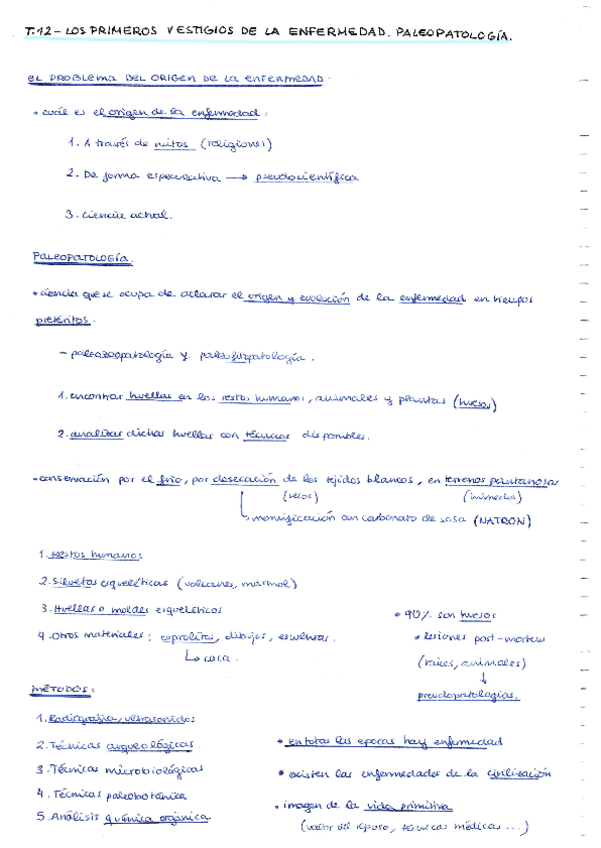 T.12 - LOS PRIMEROS VESTIGIOS DE LA ENFERMEDAD. PALEOPATOLOGÍA.
EL PROBLEMA DEL ORIGEN DE LA ENFERMEDAD:
• cuál es el origen de la enfermedad:
1. A través de mitos (religiones)
2. De forma especulativa → pseudocientífica
3. Ciencia actual.
PALEOPATOLOGÍA.
• ciencia que se ocupa de aclarar el origen y evolución de la enfermedad en tiempos
pretéritos.
- paleozoopatología y paleofitopatología.
1. encontrar huellas en los restos humanos, animales y plantas (huesos)
2. analizar dichas huellas con técnicas disponibles.
• conservación por el frío, por desecación de los tejidos blancos, en terrenos pantanosos
(secos) (húmedos)
momificación con carbonato de sosa (NATRON)
1. Restos humanos
2. Siluetas esqueléticas (volcanes, marmol)
3. Huellas o moldes esqueléticos
4. Otros materiales: coprolitos, dibujos, esculturas.
↳ caca.
• 90% son huesos
• lesiones post-mortem
(raíces, animales)
↓
pseudopatologías.
MÉTODOS:
1. Radiografía/ultrasonidos
2. Técnicas arqueológicas.
3. Técnicas microbiológicas
4. Técnicas paleobotánica
5. Análisis química orgánica
• en todas las epocas hay enfermedad
• existen las enfermedades de la civilización
• imagen de la vida primitiva
(valor del reposo, técnicas médicas...)